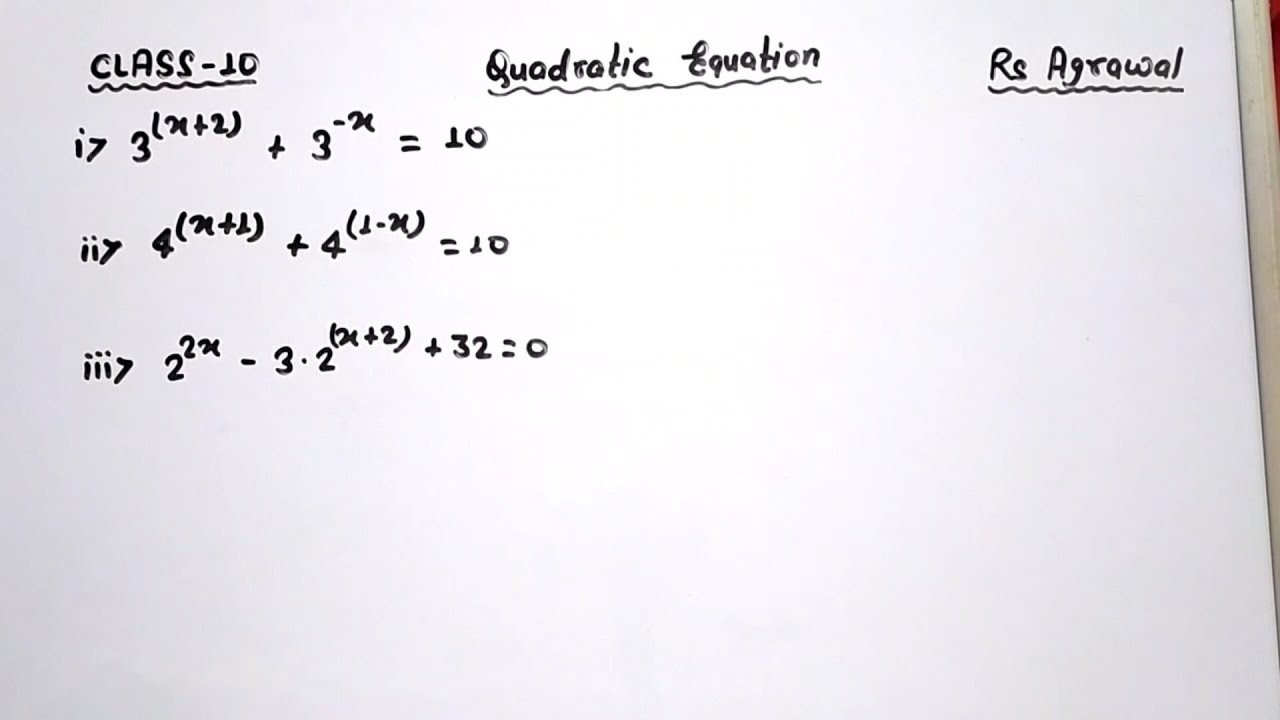 CLASS-10 Quadratic Equation Rs Agrawal
i> 3^(x+2) + 3^-x = 10
ii> 4^(x+1) + 4^(1-x) = 10
iii> 2^2x - 3·2^(x+2) + 32 = 0